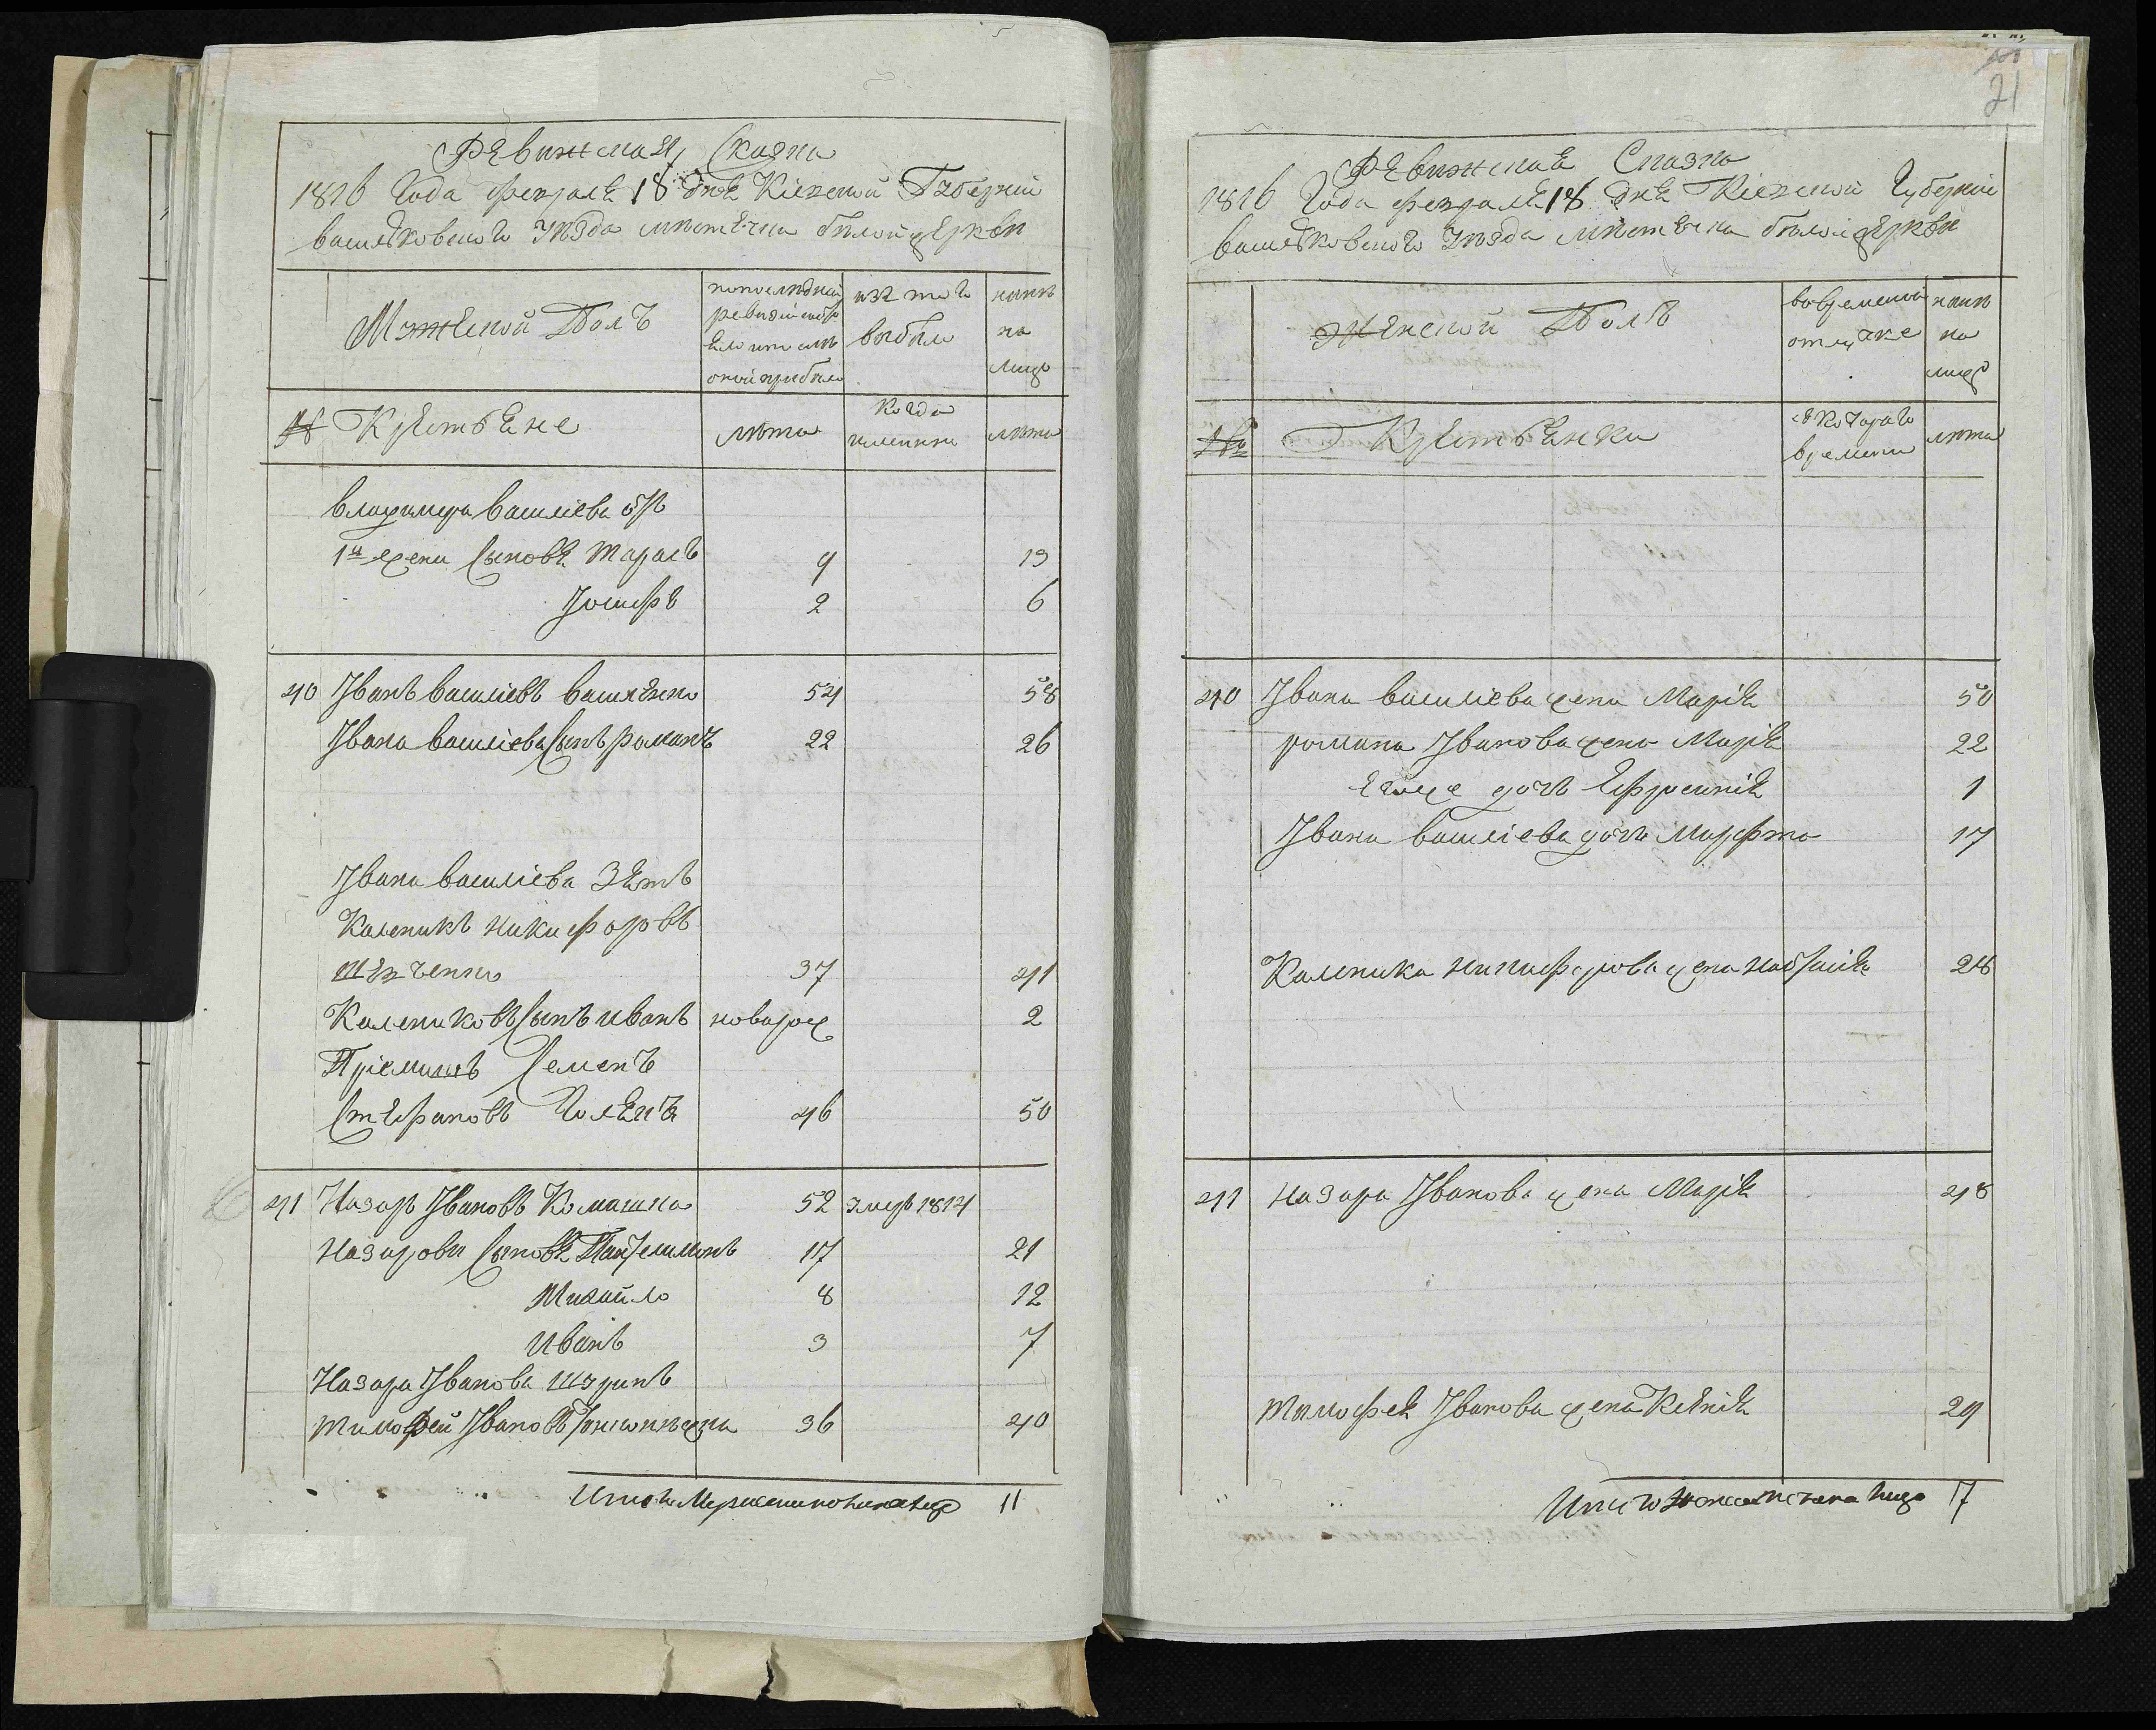 Ревижская Сказка
1816 Года февраля 18 дня Кіевской Губерніи
васильковского уезда мѣстечка белой церкви
Мужеской Полъ
по последней ревизіи состояло и после оной прибыло
изъ того выбыло
нынѣ на лицо
№ Крестьяне
лѣта
когда именно
лѣта
владимера василіева отъ
1й жены сыновя Тарасъ 9 13
Іосифъ 2 6
40 Іванъ василіевъ василенко 54 58
Івана василіева сынъ романъ 22 26
Івана василіева Зять
Каленикъ никифоровъ
шевченко 37 41
Калениковъ сынъ иванъ новорож 2
Пріемышъ Семенъ
Стефановъ 46 50
41 Назаръ Івановъ Комашка 52 умеръ 1814
Назарови сыновя Пантелимонъ 17 21
Михайло 8 12
иванъ 3 7
Назара Іванова шуринъ
тимофей Івановъ 36 40
Итого Мужеска пола на лицо 11
21
Ревижская Сказка
1816 Года февраля 18 дня Кіевской Губерніи
васильковского уезда мѣстечка белой церкви
Женской Полъ
во временной отлучке
нынѣ на лицо
№ Крестьянки
съ котораго времени
лѣта
40 Івана василіева жена Марія 50
романа Іванова жена Марія 22
его же дочь Ефросинія 1
Івана василіева дочь Марфта 17
Каленика никифорова жена настасія 28
41 Назара Іванова жена Марія 48
тимофея Іванова жена Ксенія 29
Итого женска пола на лицо 7